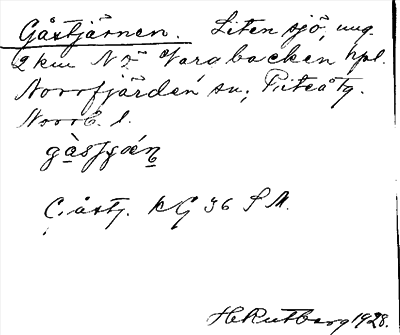 Gåstjärnen. Liten sjö, ung.
2 km NÖ Vargbacken hpl.
Norrfjärden sn; Piteå tg.
Norrb. l.
Gåstj. KG 36 S M.
H. Rutberg 1928.